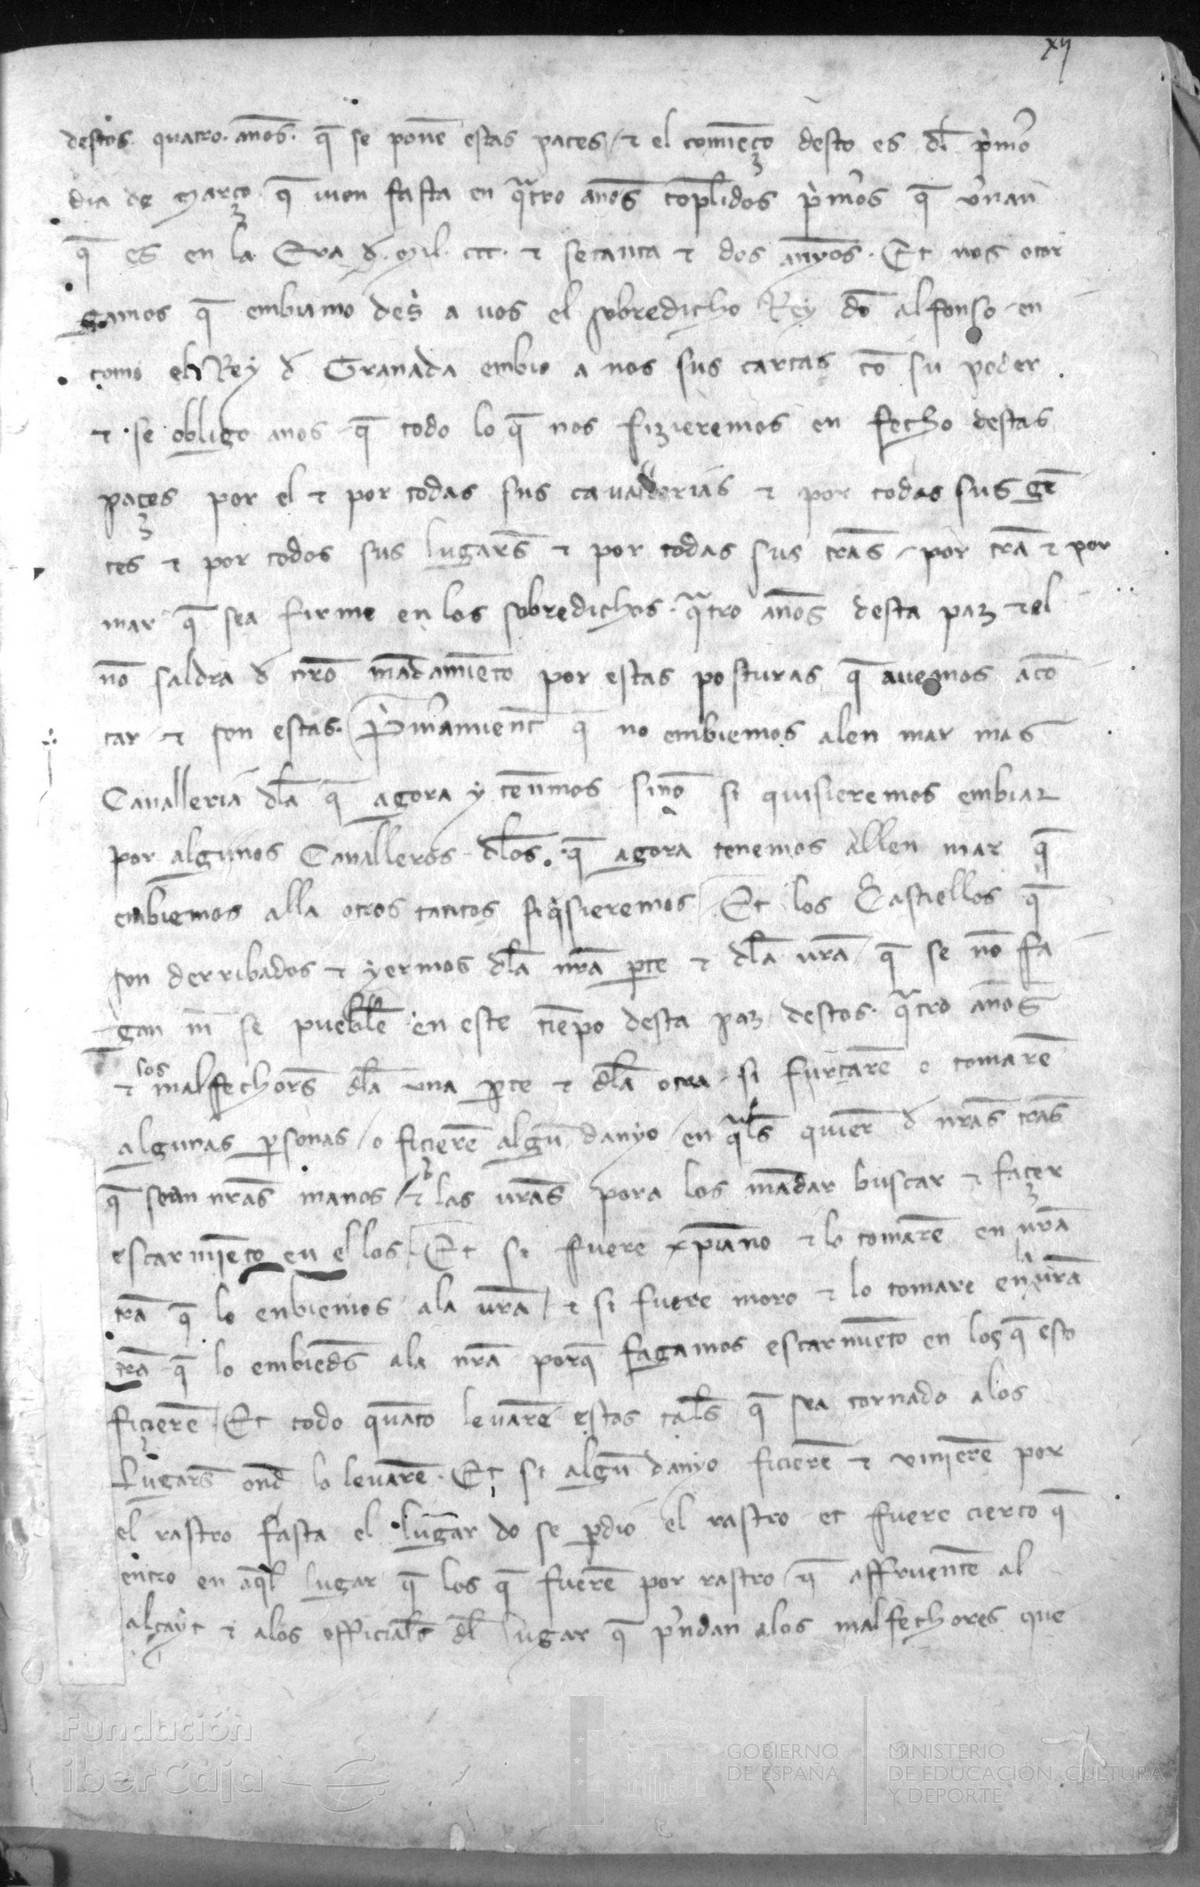 xij
destos quatro años q̄ se ponē estas paces / ⁊ el comiēço desto es dl̄ p̃mo
dia de março q̄ uien fasta en qͣtro años cōplidos p̃mos q̄ v̄nan
q̄ es en la Era đ mil ccc ⁊ setanta ⁊ dos anyos. Et nos otor
gamos q̄ embiamo des a uos el sobredicho Rey dō alfonso en
como el Rey đ Granada embio a nos sus cartas cō su poder
⁊ se obligo a nos q̄ todo lo q̄ nos fizieremos en fecho destas
paçes por el ⁊ por todas sus cavallerias ⁊ por todas sus gē
tes ⁊ por todos sus lugars̄ ⁊ por todas sus tr̄as por tr̄a ⁊ por
mar q̄ sea firme en los sobredichos qͣtro años desta paz ⁊ el
nō saldra đ nr̄o mādamiēto por estas posturas q̄ auemos a cō
tar ⁊ son estas. P̃merament q̄ no embiemos alen mar mas
Cavalleria dl̄a q̄ agora y tenīmos sinō si quisieremos embiar
por algunos Cavalleros dl̄os q̄ agora tenemos allen mar q̄
embiemos alla otros tantos si q̄sieremos / Et los Castiellos q̄
son derribados ⁊ yermos dl̄a nr̄a pte ⁊ dl̄a vr̄a q̄ se nō fa
gan nī se pueblē en este tiēpo desta paz destos qͣtro años
⁊ los malfechors̄ dl̄a una pte ⁊ dl̄a otra si furtarē o tomarē
algunas psonas / o ficierē algū danyo en qͣls̄ quier đ nr̄as tr̄as
q̄ sean nr̄as manos / ⁊ las vr̄as pora los mādar buscar ⁊ façer
escarmiēto en ellos / Et si fuere xp̄iano ⁊ lo tomarē en nr̄a
tr̄a q̄ lo enbiemos ala vr̄a / ⁊ si fuere moro ⁊ lo tomare en la vr̄a
tr̄a q̄ lo embieds̄ ala nr̄a porq̄ fagamos escarmiēto en los q̄ esto
ficierē. Et todo quāto levarē estos tals̄ q̄ sea tornado a los
Lugars̄ ond̄ lo levarē. Et si algū danyo ficierē ⁊ vinierē por
el rastro fasta el lugar do se pdio el rastro et fuere cierto q̄
entro en aq̄l lugar q̄ los q̄ fuerē por rastro q̄ affruentē al
alcayt ⁊ alos officials̄ dl̄ lugar q̄ p̄ndan alos malfechores que
Fundación
iberCaja
GOBIERNO
DE ESPAÑA
MINISTERIO
DE EDUCACIÓN, CULTURA
Y DEPORTE